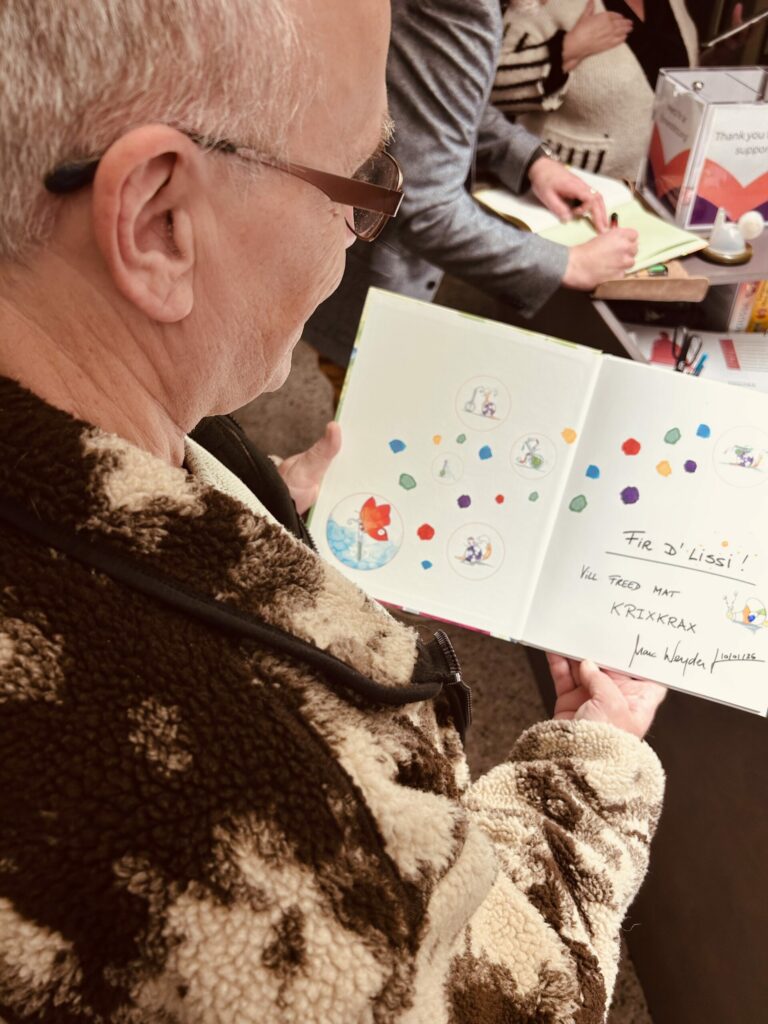 Thank you
suppor
FIR D'LISSI !
VILL FREED MAT
KRIXKRAX
Marc Weyder 10/01/26